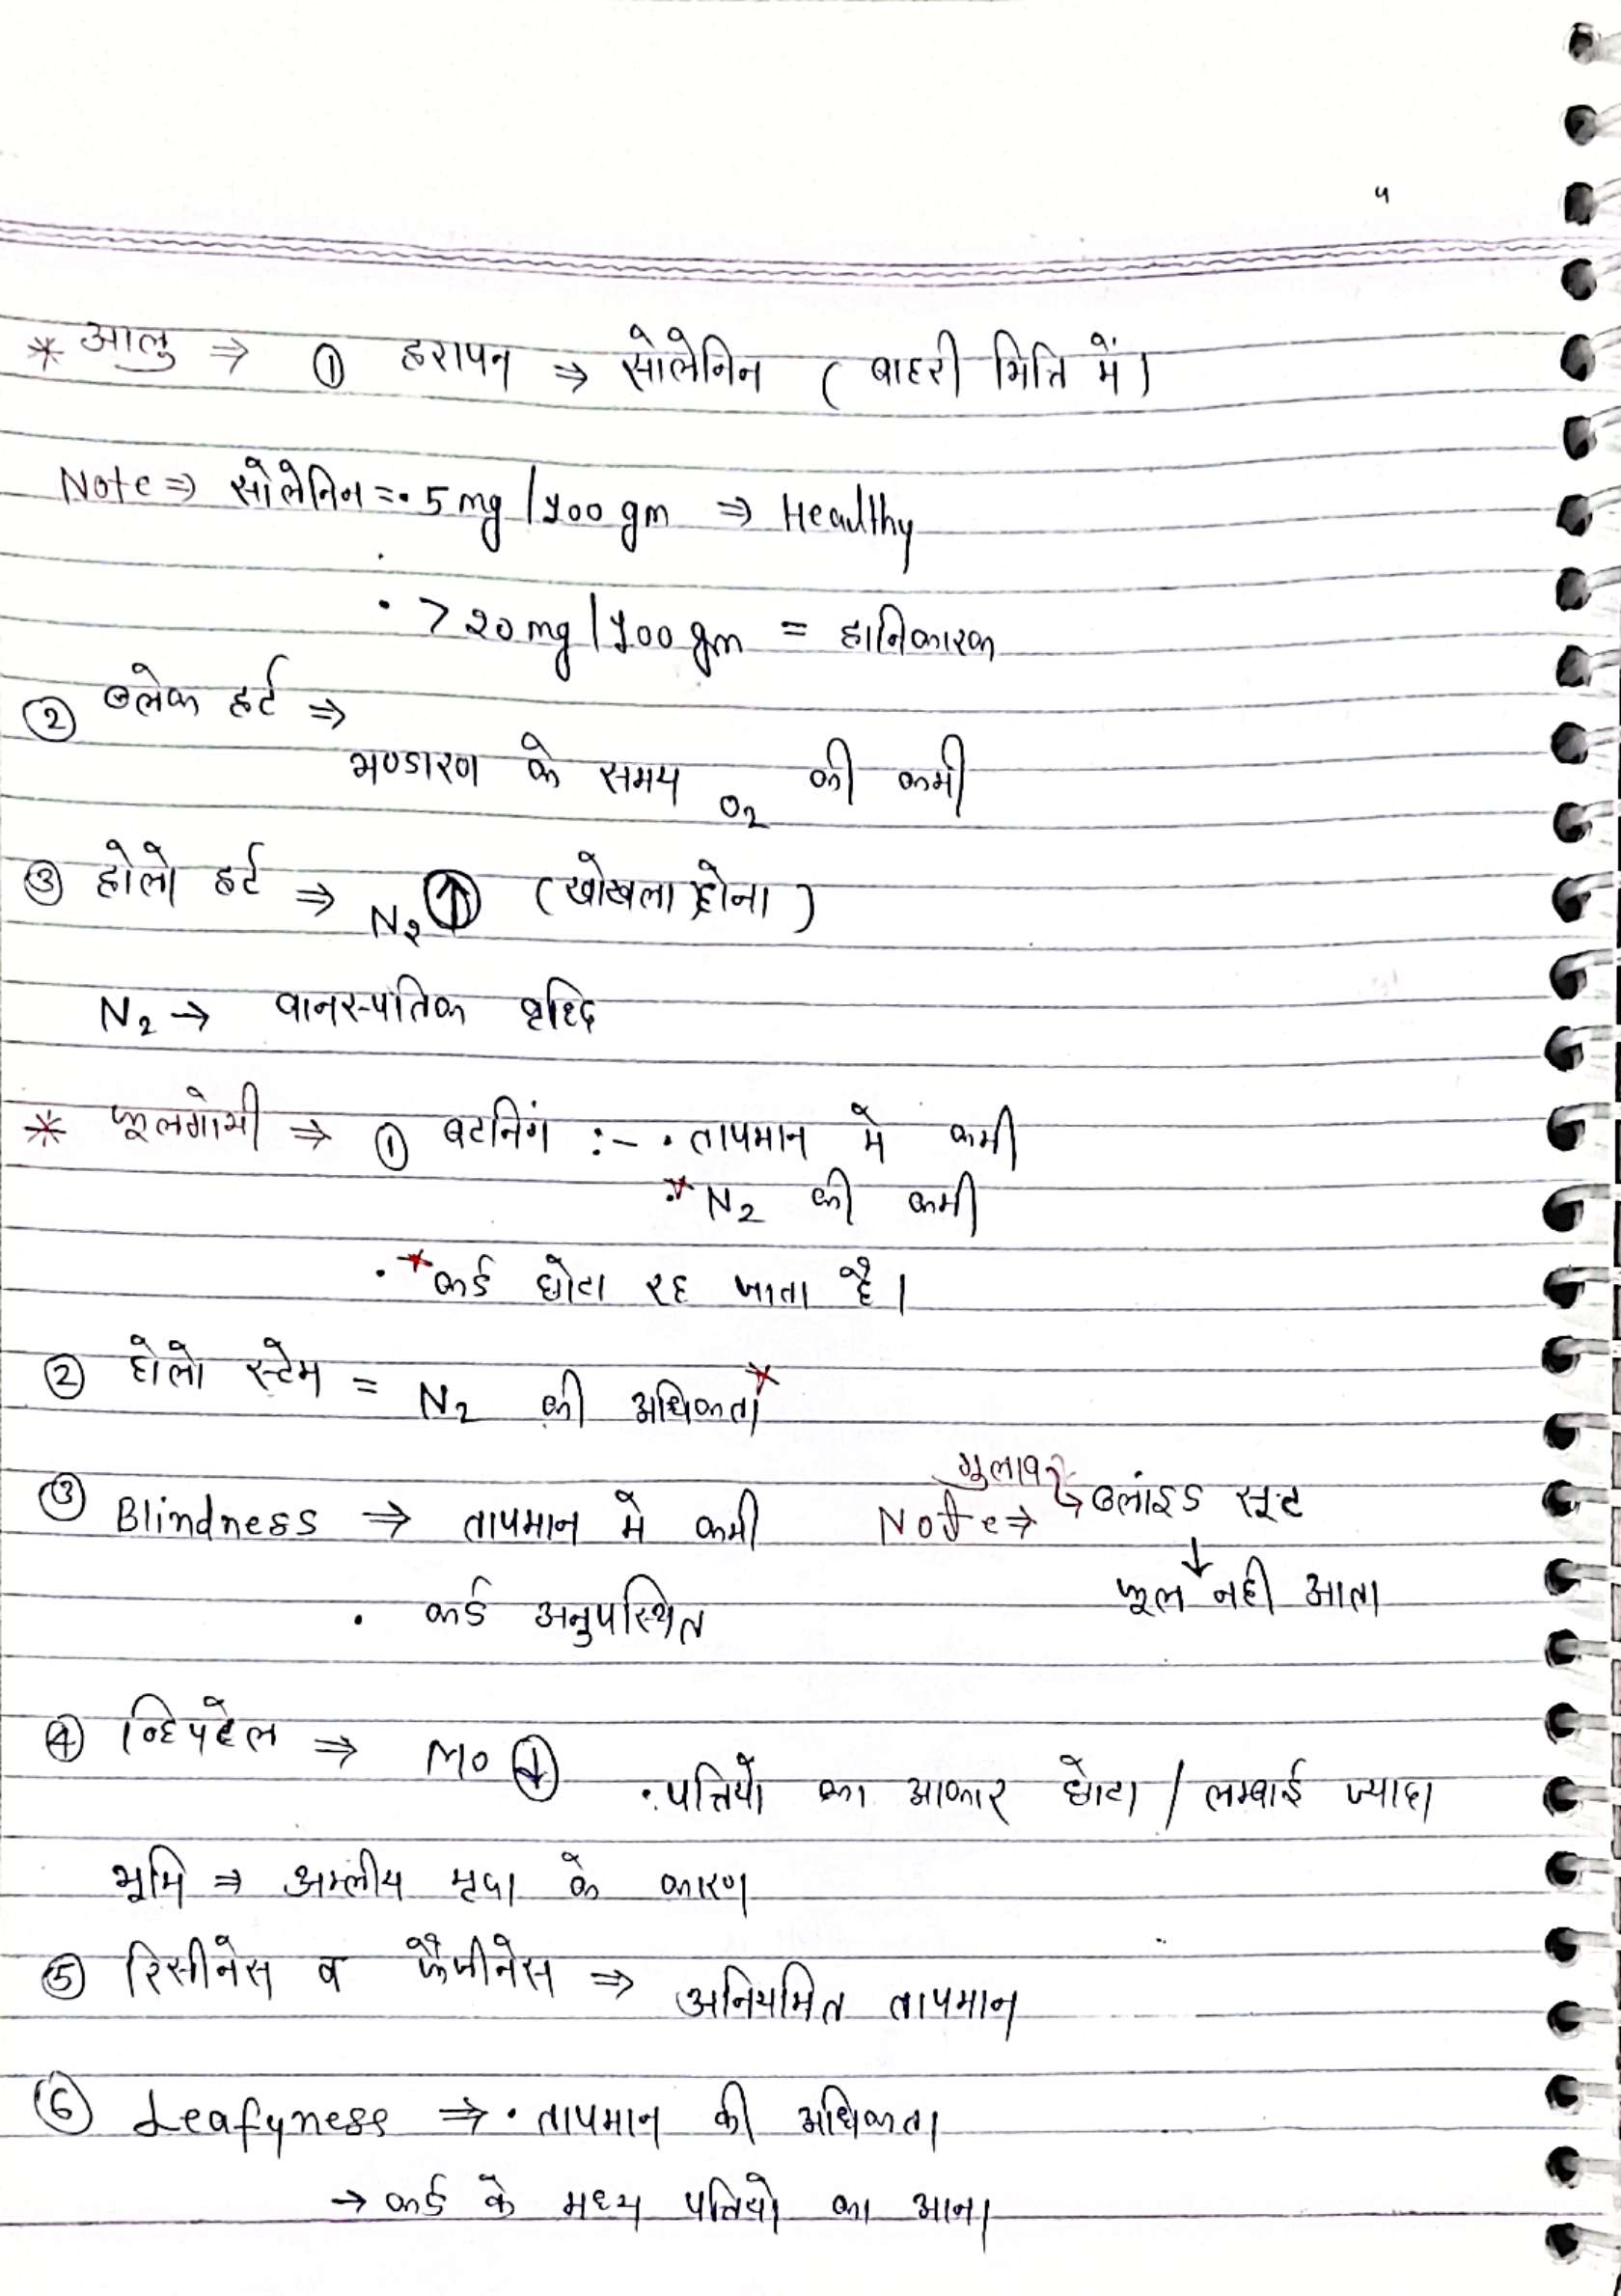 ५
* आलु ⇒ ① हरापन ⇒ सोलेनिन ( बाहरी भित्ति में )
Note ⇒ सोलेनिन = • 5 mg / 100 gm ⇒ Healthy
• > 20 mg / 100 gm = हानिकारक
② ब्लेक हर्ट ⇒
भण्डारण के समय O2 की कमी
③ होलो हर्ट ⇒ N2 ↑ ( खोखला होना )
N2 → वानस्पतिक वृध्दि
* फूलगोभी ⇒ ① बटनिंग :- • तापमान मे कमी
* N2 की कमी
• * कर्ड छोटा रह जाता है ।
② होलो स्टेम = N2 की अधिकता *
③ Blindness ⇒ तापमान मे कमी Note ⇒ गुलाब ↳ ब्लांइड सूट
↓
फूल नही आता
• कर्ड अनुपस्थित
④ व्हिपटेल ⇒ Mo ↓ • पत्तियो का आकार छोटा / लम्बाई ज्यादा
भूमि ⇒ अम्लीय मृदा के कारण
⑤ रिसीनेस व फैजीनेस ⇒ अनियमित तापमान
⑥ Leafyness ⇒ • तापमान की अधिकता
→ कर्ड के मध्य पत्तियो का आना